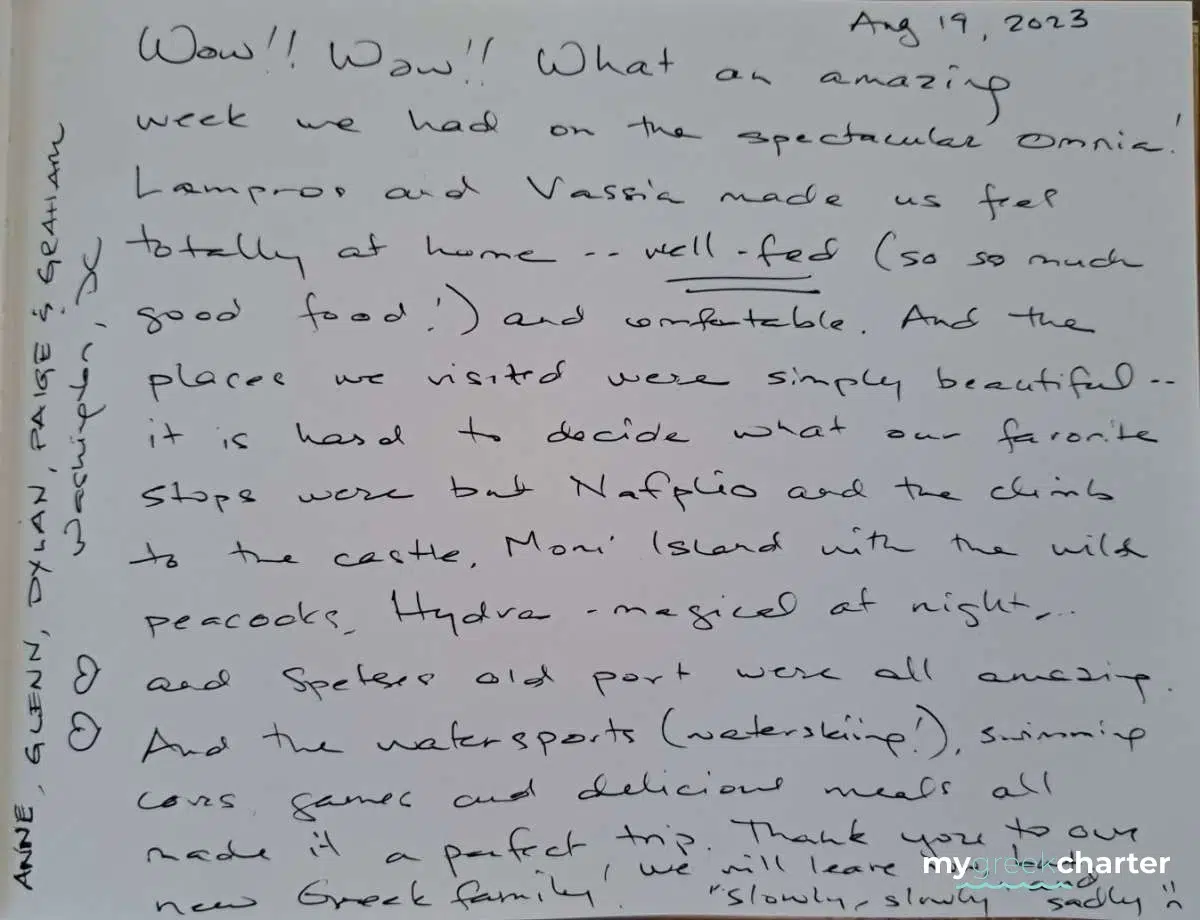 Aug 19, 2023
Wow!! Wow!! What an amazing
week we had on the spectacular Omnia!
Lampros and Vassia made us feel
totally at home -- well-fed (so so much
good food!) and comfortable. And the
places we visited were simply beautiful --
it is hard to decide what our favorite
stops were but Nafplio and the climb
to the castle, Moni Island with the wild
peacocks, Hydra - magical at night,..
and Spetses old port were all amazing.
And the watersports (waterskiing!), swimming
coves, games and delicious meals all
made it a perfect trip. Thank you to our
new Greek family! we will leave
"slowly, slowly and sadly
ANNE, GLENN, DYLAN, PAIGE & GRAHAM
Washington, DC
mygreekcharter